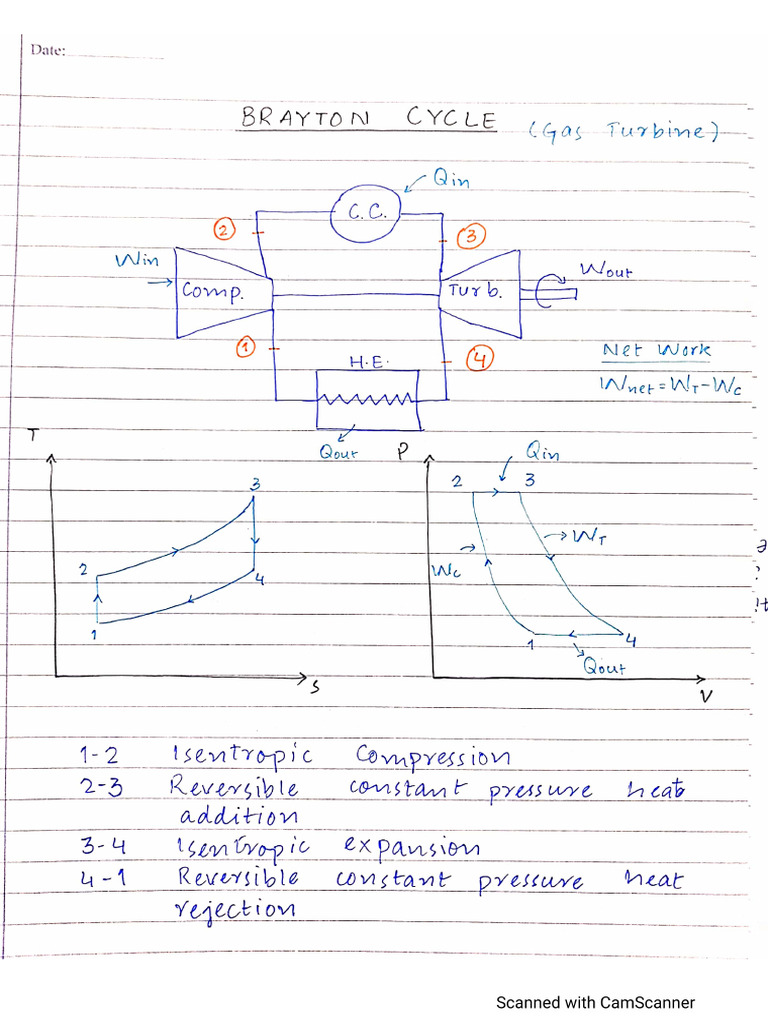 Date:
BRAYTON CYCLE (Gas Turbine)
Qin
C.C.
2
3
Win
Wout
Comp.
Turb.
1
H.E.
4
Net Work
Wnet = WT - WC
Qout
T
P
Qin
3
2
3
WT
2
WC
4
1
1
4
Qout
S
V
1-2 Isentropic Compression
2-3 Reversible constant pressure heat
addition
3-4 Isentropic expansion
4-1 Reversible constant pressure heat
rejection
Scanned with CamScanner